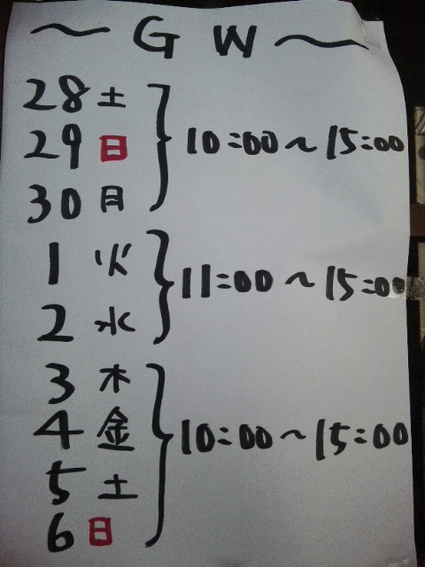 ～GW～
28土
29日
30月
10:00～15:00
1火
2水
11:00～15:00
3木
4金
5土
6日
10:00～15:00